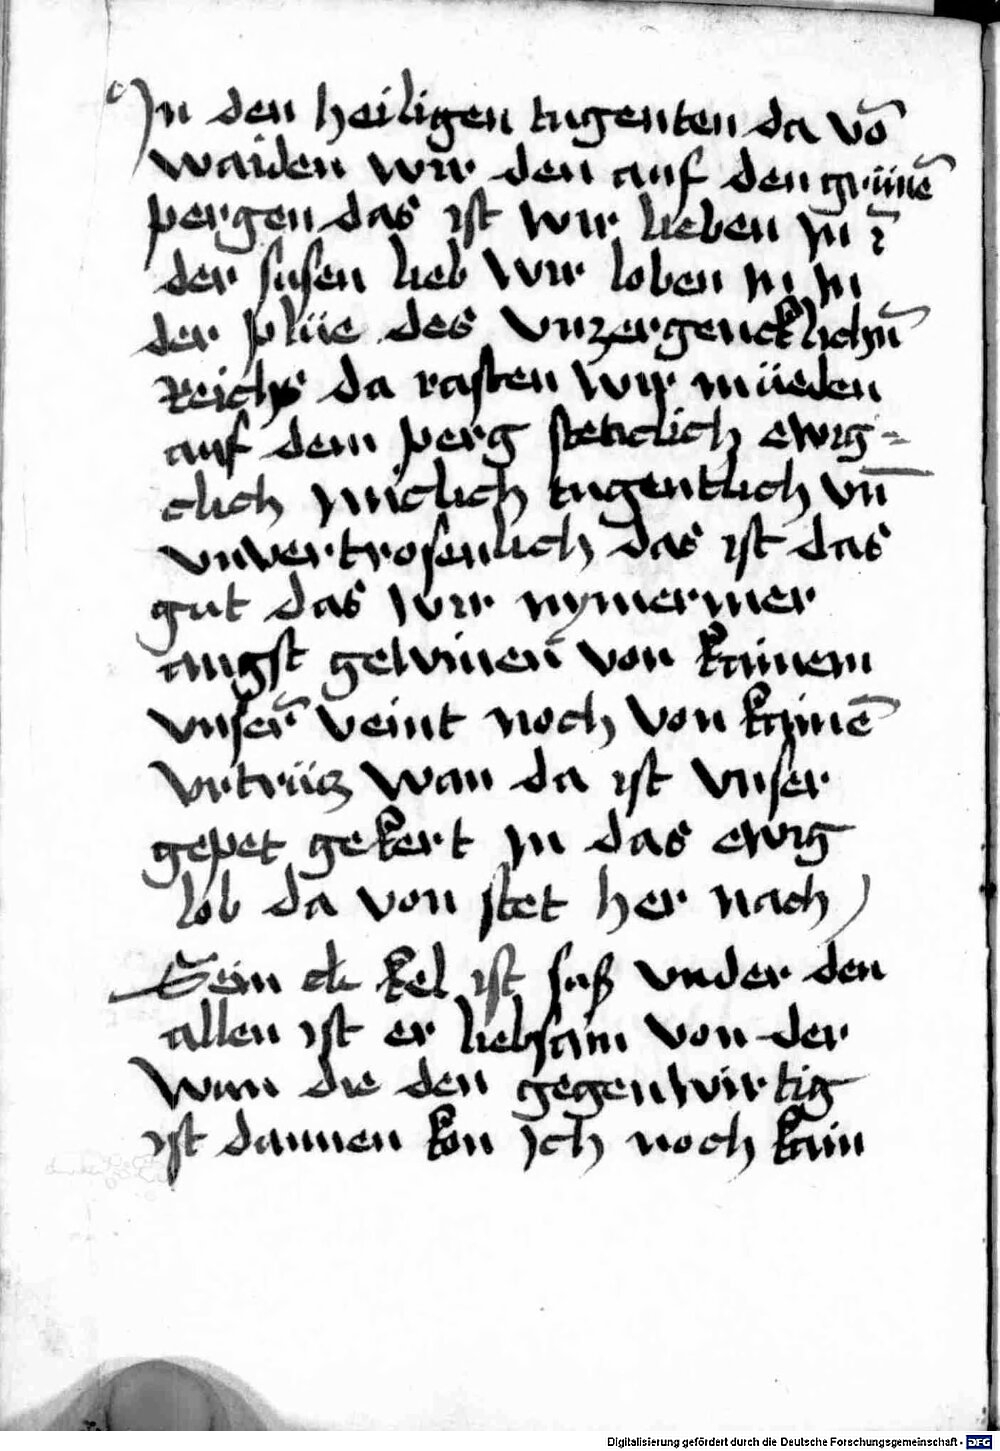 In den heiligen tugenten da vō
waiden wir den auf den grüne͂
pergen das ist wir lieben in ī
der susen lieb wir loben in in
der plüe des vnzergencklichn̄
Reichs da rasten wir müeden
auf dem perg steticlich ewig=
clich miclich tugentlich vn̄
vnvertrosenlich das ist das
gut das wir nymermer
angst gewinen von kainem
vnser̄ veint noch von kainē
vrtrücz wan da ist vnser
gepet gekert in das ewig
lob da von stet her nach
Sein kel ist suß vnder den
allen ist er liebsam von der
wun die den gegenwirtig
ist dannen kon ich noch kain
Digitalisierung gefördert durch die Deutsche Forschungsgemeinschaft - DFG